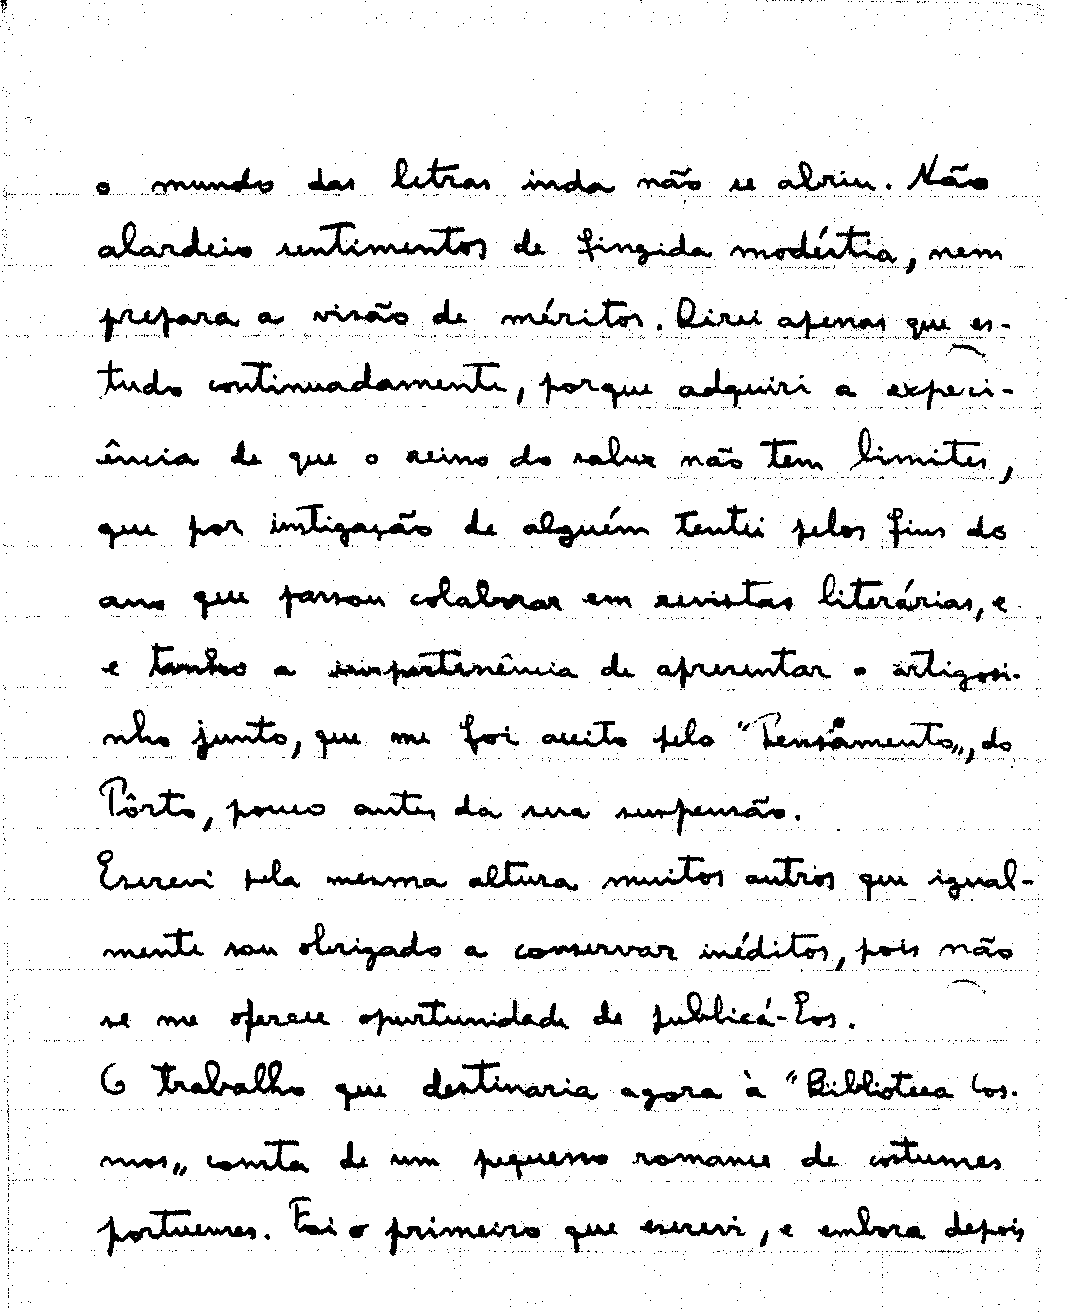 o mundo das letras inda não se abriu. Não
alardeio sentimentos de fingida modéstia, nem
prepara a visão de méritos. Direi apenas que es-
tudo continuadamente, porque adquiri a experi-
ência de que o reino do saber não tem limites,
que por instigação de alguém tentei pelos fins do
ano que passou colaborar em revistas literárias, e
e tenho a impertenência de apresentar o artigosi-
nho junto, que me foi aceito pelo "Pensamento", do
Pôrto, pouco antes da sua suspensão.
Escrevi pela mesma altura muitos outros que igual-
mente sou obrigado a conservar inéditos, pois não
se me oferece oportunidade de publicá-los.
O trabalho que destinaria agora à "Biblioteca Cos-
mos" consta de um pequeno romance de costumes
portuenses. Foi o primeiro que escrevi, e embora depois